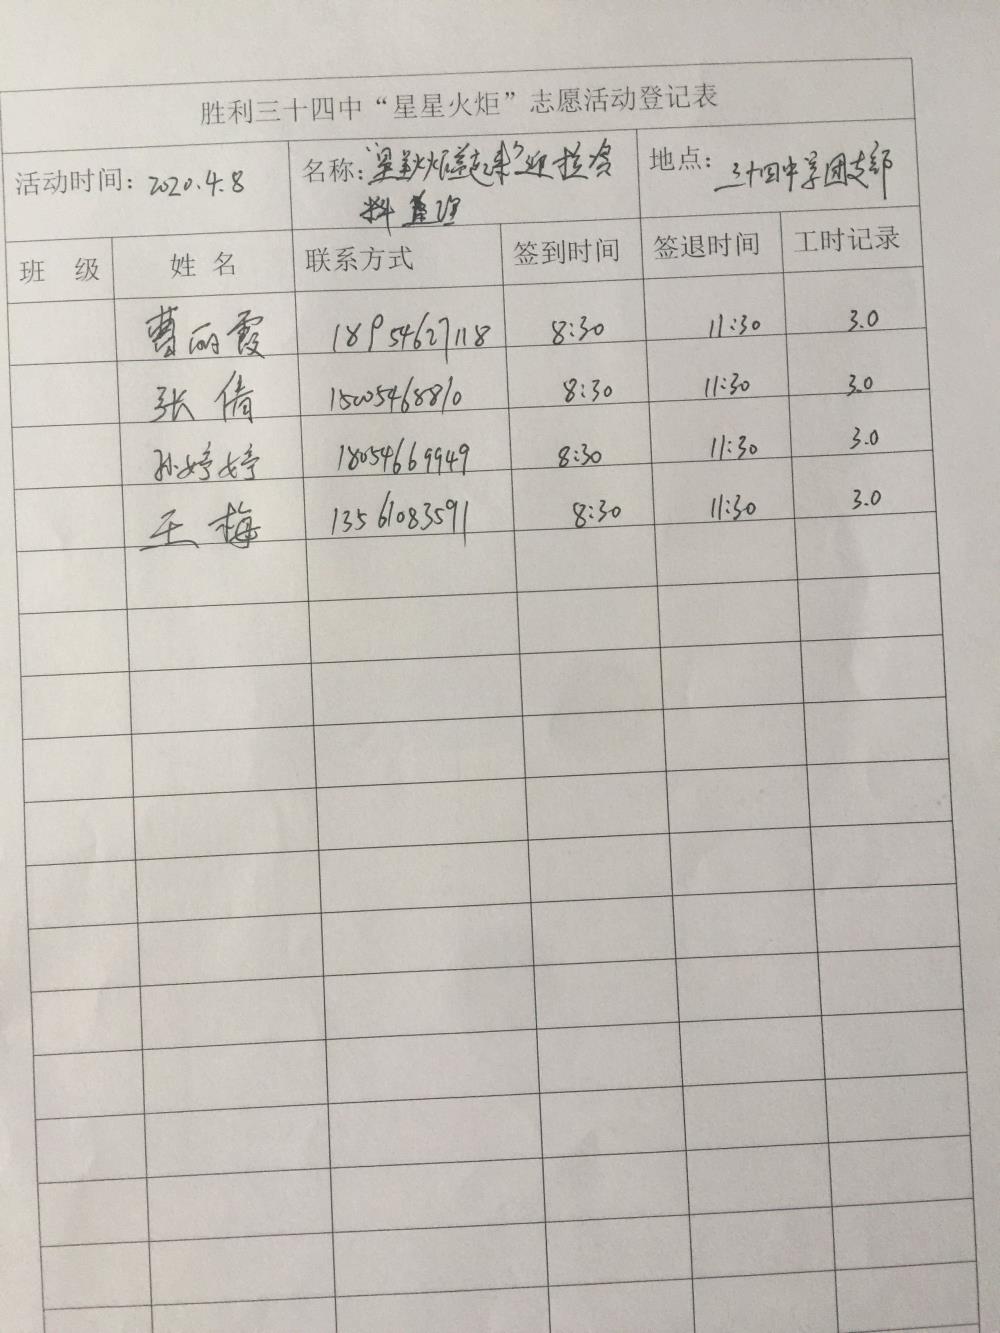 胜利三十四中“星星火炬”志愿活动登记表
活动时间：2020.4.8 名称：“星星火炬送起来”迎检资 地点：三十四中学团支部
料整理
班 级 姓 名 联系方式 签到时间 签退时间 工时记录
曹丽霞 18954627118 8:30 11:30 3.0
张倩 15005468810 8:30 11:30 3.0
孙婷婷 18054669949 8:30 11:30 3.0
王梅 13561083591 8:30 11:30 3.0